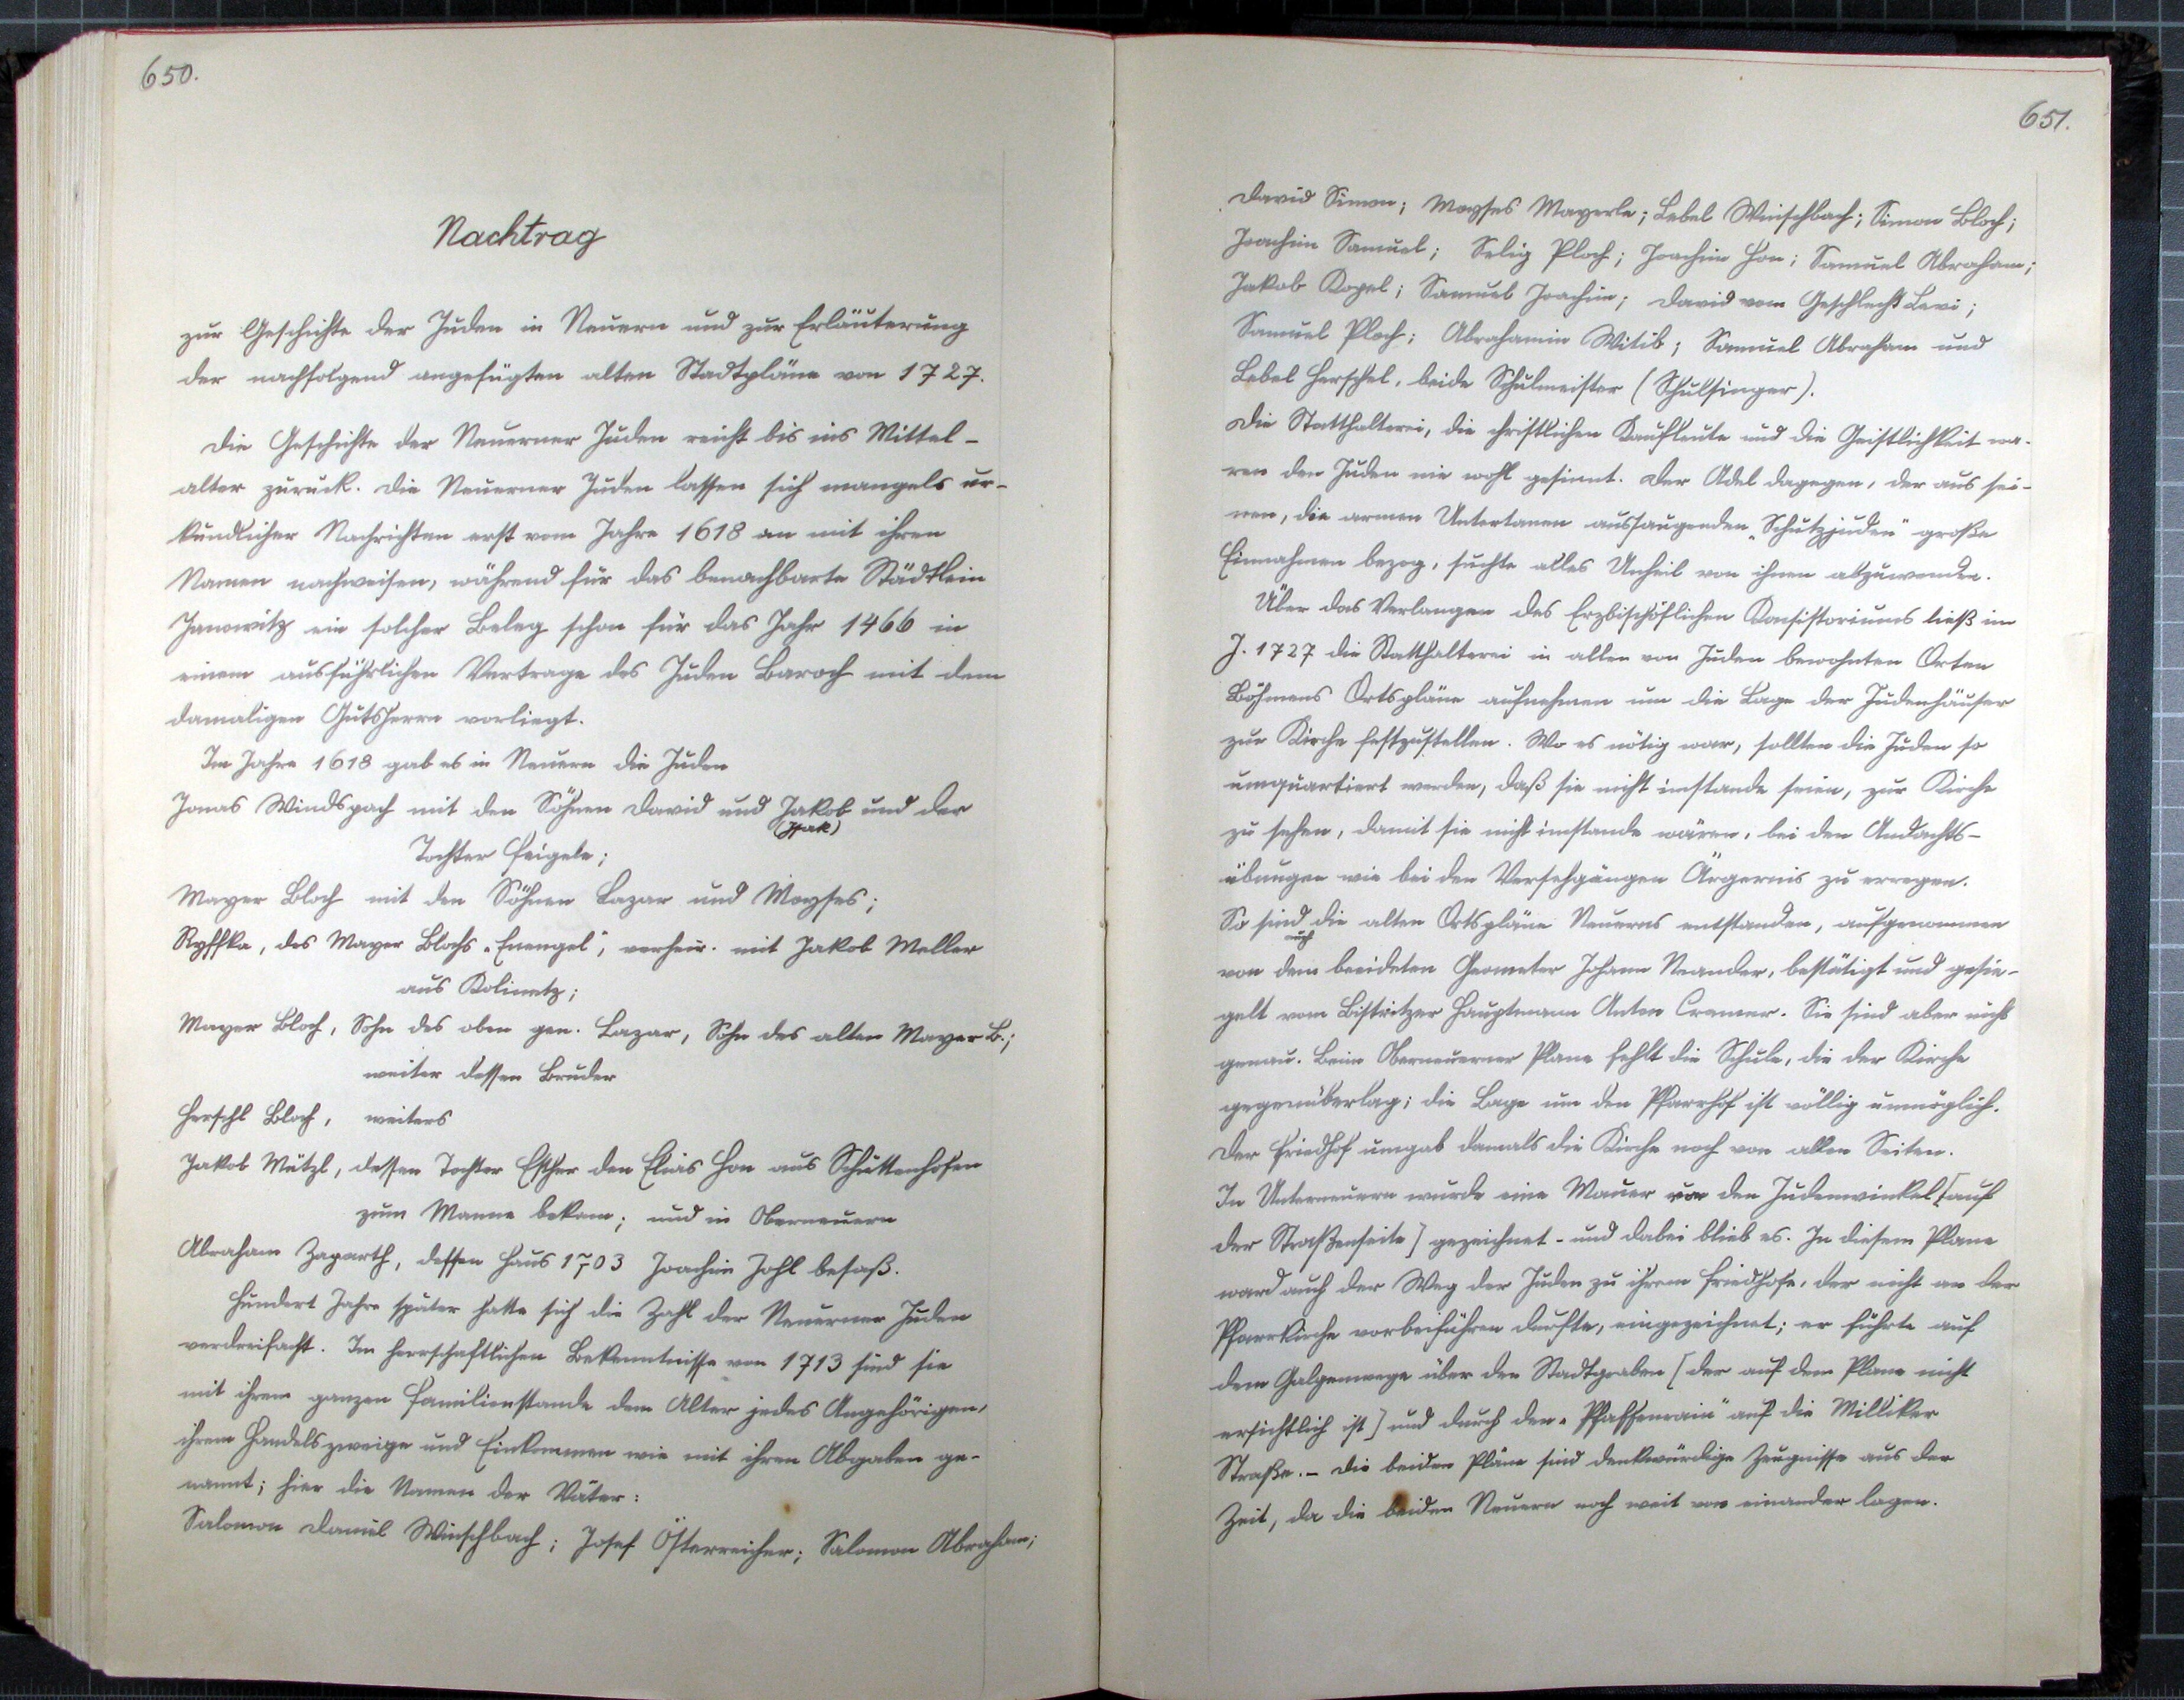 650.
Nachtrag
zur Geschichte der Juden in Neuern und zur Erläuterung
der nachfolgend angefügten alten Stadtpläne von 1727.
Die Geschichte der Neuerner Juden reicht bis ins Mittel-
alter zurück. Die Neuerner Juden lassen sich mangels ur-
kundlicher Nachrichten erst vom Jahre 1618 an mit ihren
Namen nachweisen, während für das benachbarte Städtlein
Janowitz ein solcher Beleg schon für das Jahr 1466 in
einem ausführlichen Vertrage des Juden Baroch mit dem
damaligen Gutsherrn vorliegt.
Im Jahre 1618 gab es in Neuern die Juden
Jonas Windspach mit den Söhnen David und Jakob und der
(Isak)
Tochter Feigele;
Mayer Bloch mit den Söhnen Lazar und Moyses;
Ryffka, des Mayer Blochs „Enengel", verheir. mit Jakob Meller
aus Kolinetz;
Mayer Bloch, Sohn des oben gen. Lazar, Sohn des alten Mayer B.;
weiter dessen Bruder
Herschl Bloch, weiters
Jakob Mützl, dessen Tochter Esther den Elias Hon aus Schüttenhofen
zum Manne bekam; und in Oberneuern
Abraham Zaparth, dessen Haus 1703 Joachim Zohl besaß.
Hundert Jahre später hatte sich die Zahl der Neuerner Juden
verdreifacht. Im herrschaftlichen Bekenntnisse von 1713 sind sie
mit ihrem ganzen Familienstande dem Alter jedes Angehörigen,
ihrem Handelszweige und Einkommen wie mit ihren Abgaben ge-
nannt; hier die Namen der Väter:
Salomon Daniel Winschbach; Josef Österreicher; Salomon Abraham;
651.
David Simon; Moyses Mayerle; Lebel Winschbach; Simon Bloch;
Joachim Samuel; Selig Ploch; Joachim Hon; Samuel Abraham;
Jakob Kopel; Samuel Joachim; David vom Geschlecht Levi;
Samuel Ploch; Abrahamin Witib; Samuel Abraham und
Lebel Herschel, beide Schulmeister (Schulsinger).
Die Statthalterei, die christlichen Kaufleute und die Geistlichkeit wa-
ren den Juden nie wohl gesinnt. Der Adel dagegen, der aus sei-
nen, die armen Untertanen aussaugenden „Schutzjuden" große
Einnahmen bezog, suchte alles Unheil von ihnen abzuwenden.
Über das Verlangen des Erzbischöflichen Konsistoriums ließ im
J. 1727 die Statthalterei in allen von Juden bewohnten Orten
Böhmens Ortspläne aufnehmen um die Lage der Judenhäuser
zur Kirche festzustellen. Wo es nötig war, sollten die Juden so
umquartiert werden, daß sie nicht imstande seien, zur Kirche
zu sehen, damit sie nicht imstande wären, bei den Andachts-
übungen wie bei den Versehgängen Ärgernis zu erregen.
So sind die alten Ortspläne Neuerns entstanden, aufgenommen
auch
von dem beeideten Geometer Johann Neander, bestätigt und gesie-
gelt vom Bistritzer Hauptmann Anton Cramer. Sie sind aber nicht
genau. Beim Oberneuerner Plane fehlt die Schule, die der Kirche
gegenüberlag; die Lage um den Pfarrhof ist völlig unmöglich.
Der Friedhof umgab damals die Kirche noch von allen Seiten.
In Unterneuern wurde eine Mauer vor den Judenwinkel [auf
der Straßenseite] gezeichnet - und dabei blieb es. In diesem Plane
ward auch der Weg der Juden zu ihrem Friedhofe, der nicht an der
Pfarrkirche vorbeiführen durfte, eingezeichnet; er führte auf
dem Galgenwege über den Stadtgraben [der auf dem Plane nicht
ersichtlich ist] und durch den „Pfaffenrain" auf die Milliker
Straße. - Die beiden Pläne sind denkwürdige Zeugnisse aus der
Zeit, da die beiden Neuern noch weit von einander lagen.